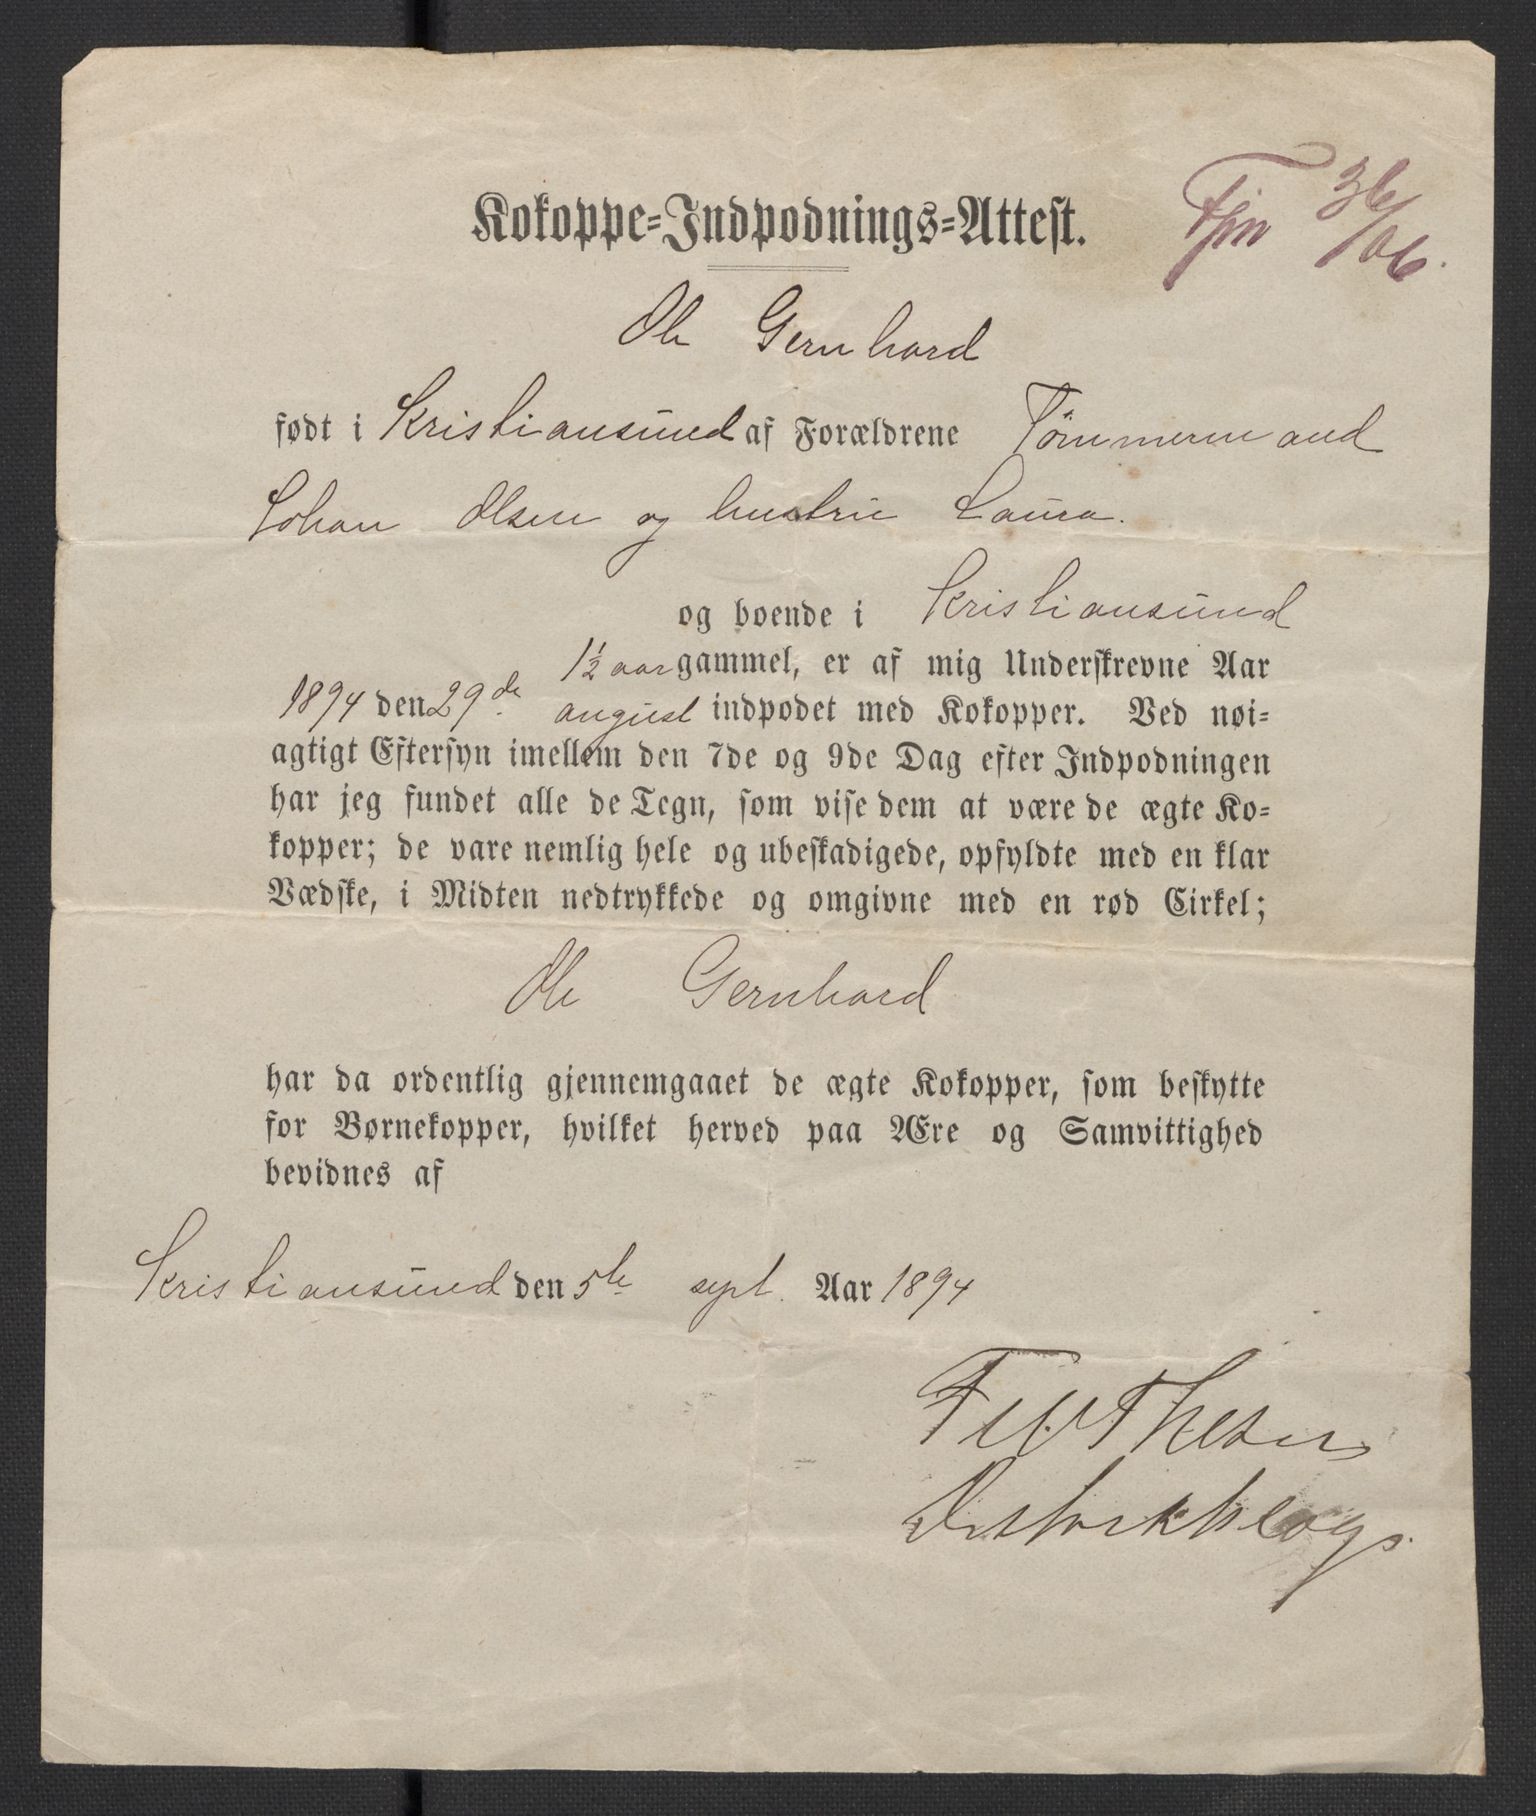 Kokoppe-Indpodnings-Attest.
36/06.
Ole Gernhard
født i Kristiansund af Forældrene Tømmermand
Johan Olsen og hustru Laura.
og boende i Kristiansund
1½ aar gammel, er af mig Underskrevne Aar
1894 den 29de august indpodet med Kokopper. Ved nøi-
agtigt Eftersyn imellem den 7de og 9de Dag efter Indpodningen
har jeg fundet alle de Tegn, som vise dem at være de ægte Ko-
kopper; de vare nemlig hele og ubeskadigede, opfyldte med en klar
Vædske, i Midten nedtrykkede og omgivne med en rød Cirkel;
Ole Gernhard
har da ordentlig gjennemgaaet de ægte Kokopper, som beskytte
for Børnekopper, hvilket herved paa Ære og Samvittighed
bevidnes af
Kristiansund den 5te sept. Aar 1894
Distriktslæge.